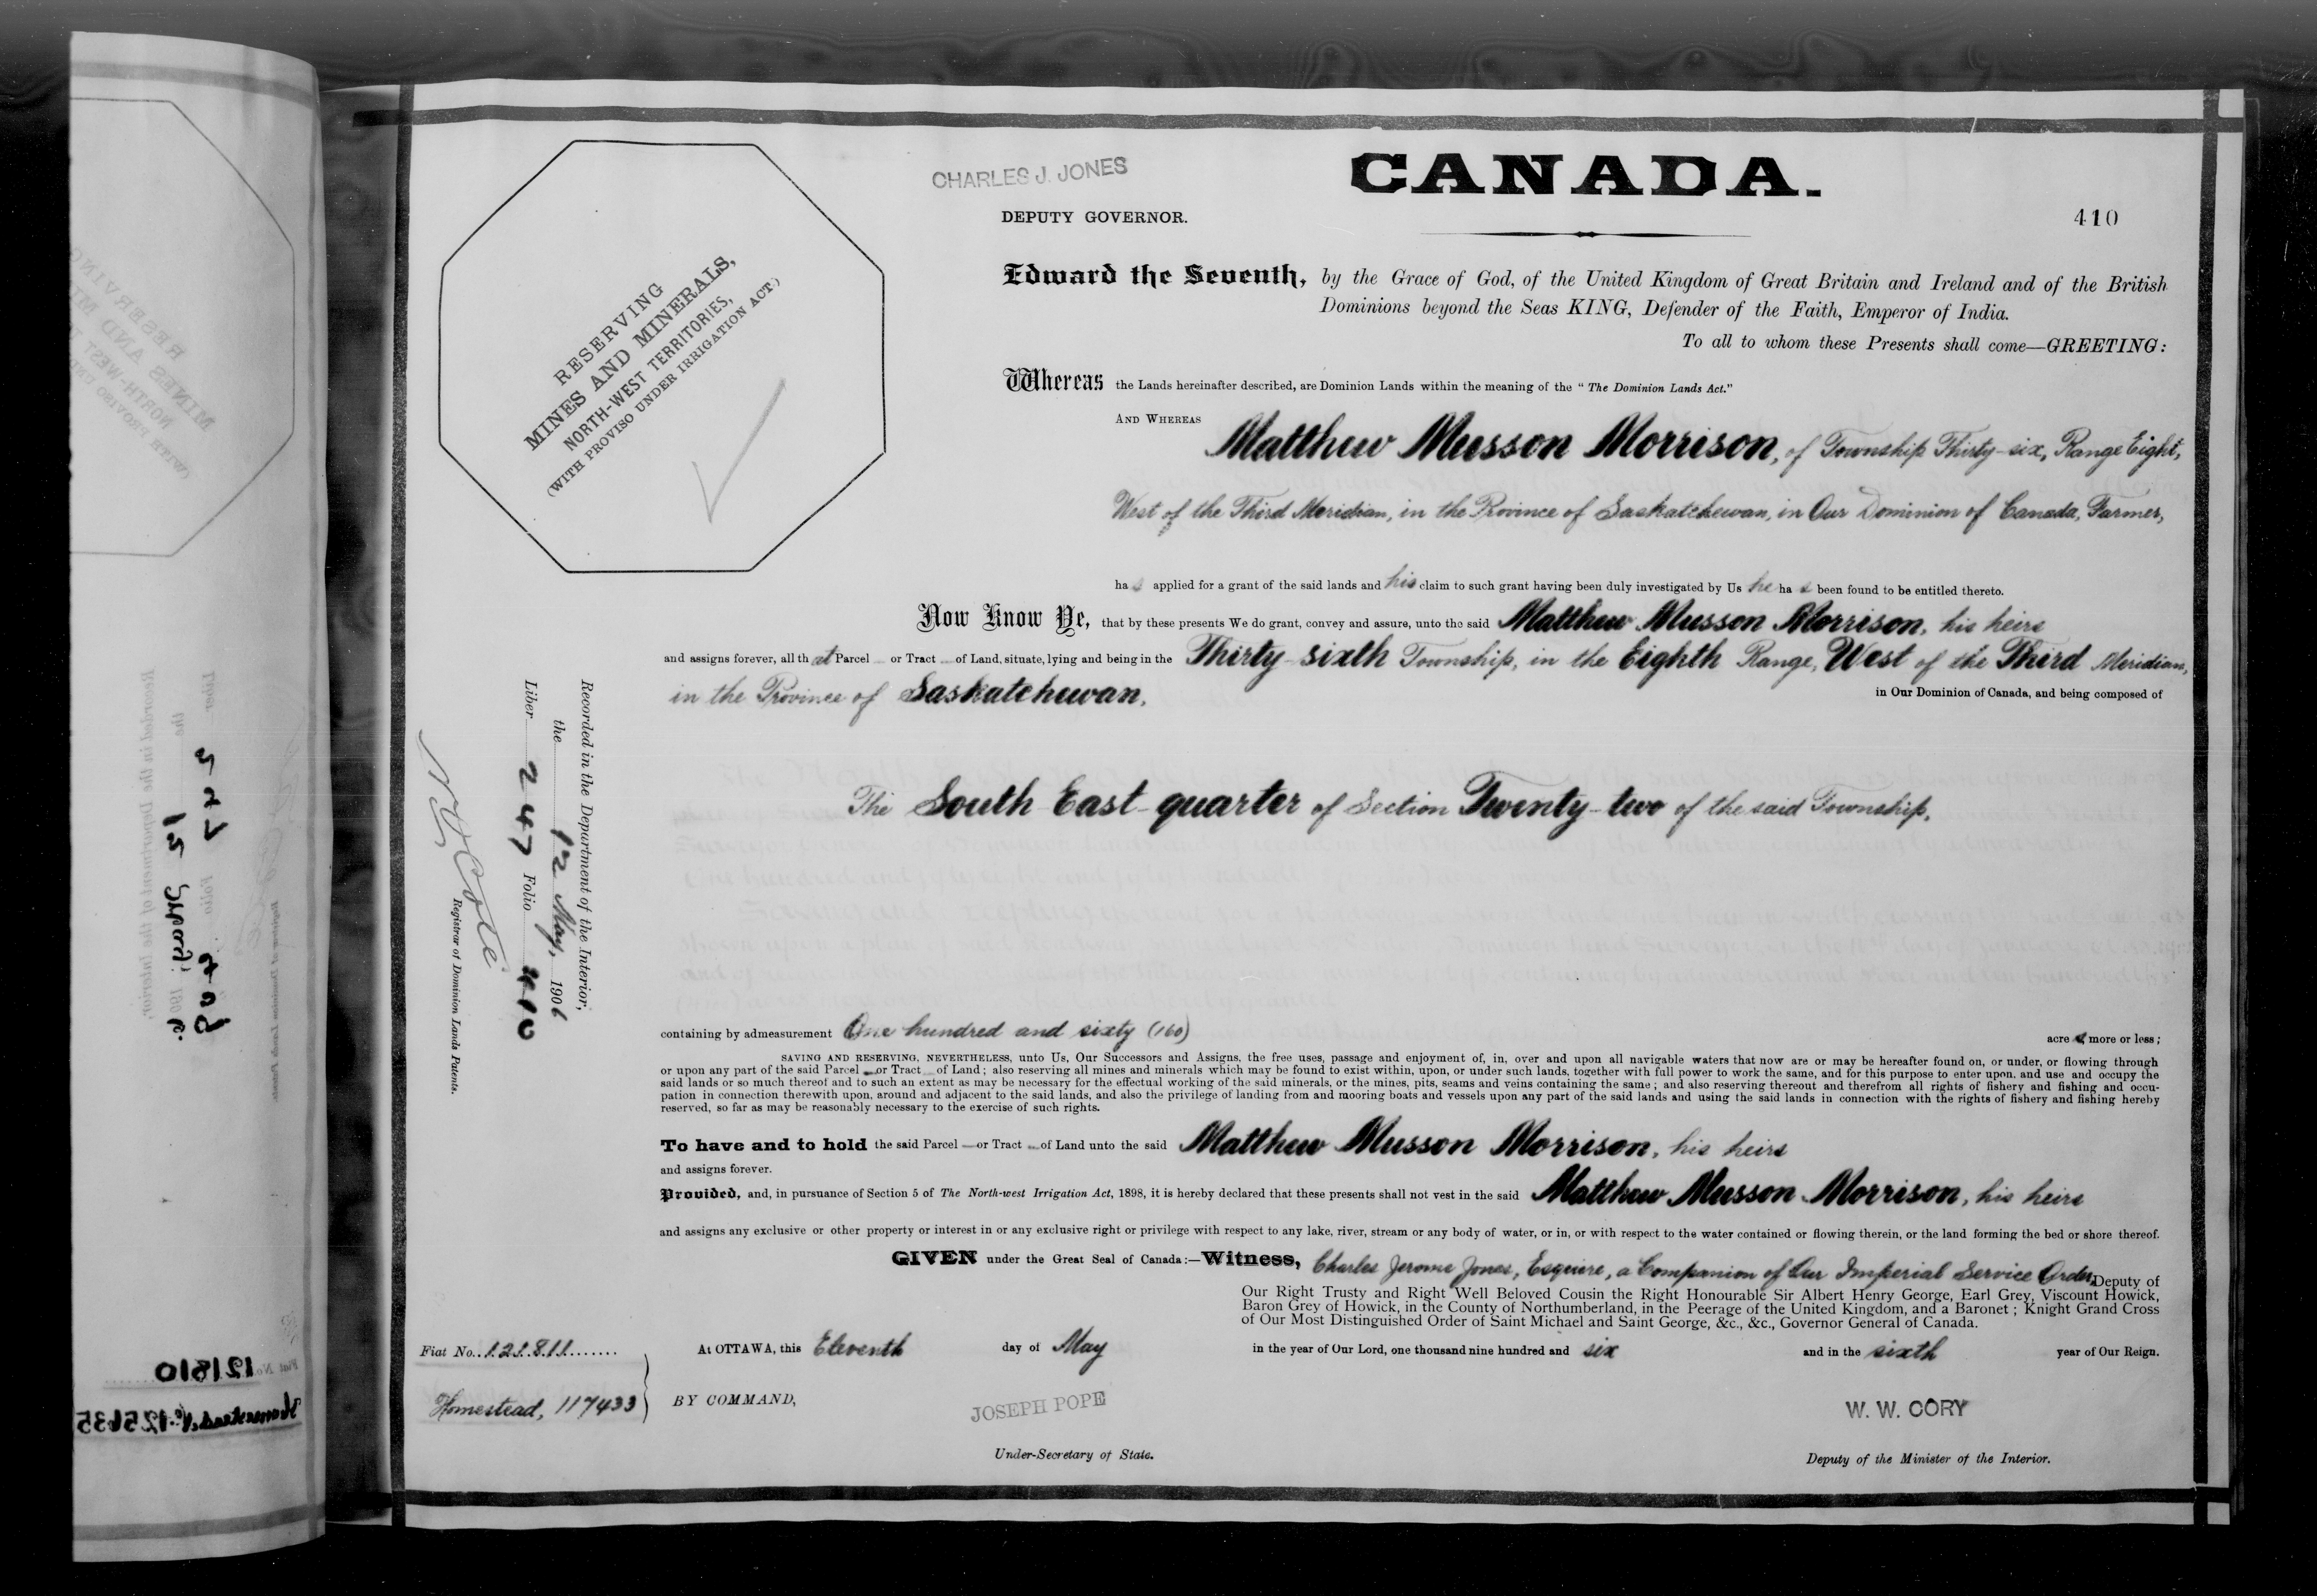 CHARLES J. JONES
CANADA.
DEPUTY GOVERNOR.
410
RESERVING
MINES AND MINERALS,
NORTH-WEST TERRITORIES,
(WITH PROVISO UNDER IRRIGATION ACT.)
Edward the Seventh, by the Grace of God, of the United Kingdom of Great Britain and Ireland and of the British
Dominions beyond the Seas KING, Defender of the Faith, Emperor of India.
To all to whom these Presents shall come—GREETING:
Whereas the Lands hereinafter described, are Dominion Lands within the meaning of the "The Dominion Lands Act."
AND WHEREAS
Matthew Musson Morrison, of Township Thirty-six, Range Eight,
West of the Third Meridian, in the Province of Saskatchewan, in Our Dominion of Canada, Farmer,
has applied for a grant of the said lands and his claim to such grant having been duly investigated by Us he has been found to be entitled thereto.
Now Know Ye, that by these presents We do grant, convey and assure, unto the said Matthew Musson Morrison, his heirs
and assigns forever, all that Parcel or Tract of Land, situate, lying and being in the Thirty-sixth Township, in the Eighth Range, West of the Third Meridian,
in the Province of Saskatchewan, in Our Dominion of Canada, and being composed of
The South East quarter of Section Twenty-two of the said Township,
Recorded in the Department of the Interior,
the 12 May, 1906
Liber 247 Folio 410
N. O. Coté
Registrar of Dominion Lands Patents.
containing by admeasurement One hundred and sixty (160) acres more or less;
SAVING AND RESERVING, NEVERTHELESS, unto Us, Our Successors and Assigns, the free uses, passage and enjoyment of, in, over and upon all navigable waters that now are or may be hereafter found on, or under, or flowing through
or upon any part of the said Parcel or Tract of Land; also reserving all mines and minerals which may be found to exist within, upon, or under such lands, together with full power to work the same, and for this purpose to enter upon, and use and occupy the
said lands or so much thereof and to such an extent as may be necessary for the effectual working of the said minerals, or the mines, pits, seams and veins containing the same; and also reserving thereout and therefrom all rights of fishery and fishing and occu-
pation in connection therewith upon, around and adjacent to the said lands, and also the privilege of landing from and mooring boats and vessels upon any part of the said lands and using the said lands in connection with the rights of fishery and fishing hereby
reserved, so far as may be reasonably necessary to the exercise of such rights.
To have and to hold the said Parcel or Tract of Land unto the said Matthew Musson Morrison, his heirs
and assigns forever.
Provided, and, in pursuance of Section 5 of The North-west Irrigation Act, 1898, it is hereby declared that these presents shall not vest in the said Matthew Musson Morrison, his heirs
and assigns any exclusive or other property or interest in or any exclusive right or privilege with respect to any lake, river, stream or any body of water, or in, or with respect to the water contained or flowing therein, or the land forming the bed or shore thereof.
GIVEN under the Great Seal of Canada:—Witness, Charles Jerome Jones, Esquire, a Companion of Our Imperial Service Order, Deputy of
Our Right Trusty and Right Well Beloved Cousin the Right Honourable Sir Albert Henry George, Earl Grey, Viscount Howick,
Baron Grey of Howick, in the County of Northumberland, in the Peerage of the United Kingdom, and a Baronet; Knight Grand Cross
of Our Most Distinguished Order of Saint Michael and Saint George, &c., &c., Governor General of Canada.
At OTTAWA, this Eleventh day of May in the year of Our Lord, one thousand nine hundred and six and in the sixth year of Our Reign.
Fiat No. 121811
Homestead, 117433
BY COMMAND,
JOSEPH POPE
Under-Secretary of State.
W. W. CORY
Deputy of the Minister of the Interior.
Fiat No. 121810
Homestead, No. 125635